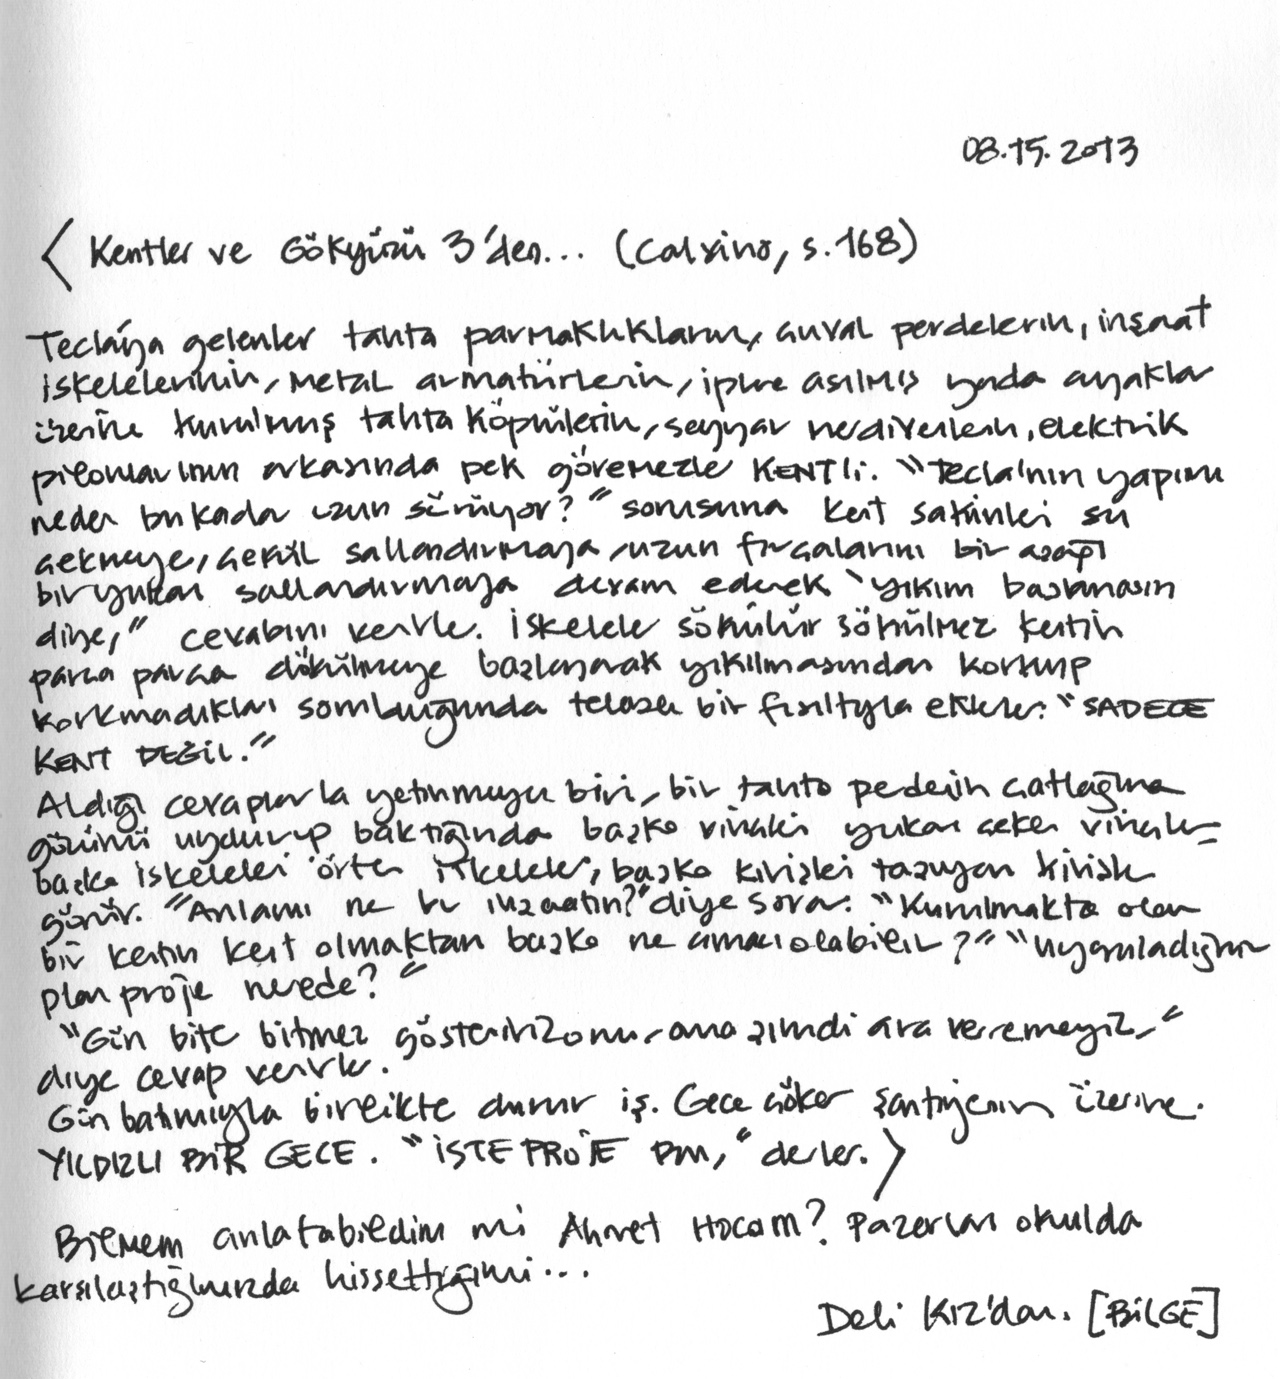 08.15.2013
< Kentler ve Gökyüzü 3'den... (Calvino, s.168)
Tecla'ya gelenler tahta parmaklıkların, çuval perdelerin, inşaat
iskelelerinin, metal armatürlerin, iplere asılmış yada ayaklar
üzerine kurulmuş tahta köprülerin, seyyar merdivenlerin, elektrik
pilonlarının arkasında pek göremezler KENTİ. "Tecla'nın yapımı
neden bu kadar uzun sürüyor?" sorusuna kent sakinleri su
çekmeye, çekül sallandırmaya, uzun fırçalarını bir aşağı
bir yukarı sallandırmaya devam ederek "yıkım başlamasın
diye," cevabını verirler. İskeleler sökülür sökülmez kentin
parça parça dökülmeye başlayarak yıkılmasından korkup
korkmadıkları sorulduğunda telaşlı bir fısıltıyla eklerler: "SADECE
KENT DEĞİL."
Aldığı cevaplarla yetinmeyen biri, bir tahta perdenin çatlağına
gözünü uydurup baktığında başka vinçleri yukarı çeken vinçler
başka iskeleleri örten iskeleler, başka kirişleri taşıyan kirişler
görür. "Anlamı ne bu inşaatın?" diye sorar. "Kurulmakta olan
bir kentin kent olmaktan başka ne amacı olabilir?" "Uyguladığınız
plan proje nerede?"
"Gün biter bitmez gösteririz onu, ama şimdi ara veremeyiz,"
diye cevap verirler.
Gün batımıyla birlikte durur iş. Gece çöker şantiyenin üzerine.
YILDIZLI BİR GECE. "İŞTE PROJE BU," derler. >
Bilmem anlatabildim mi Ahmet Hocam? Pazarları okulda
karşılaştığımızda hissettiğimi...
Deli Kız'dan. [BİLGE]